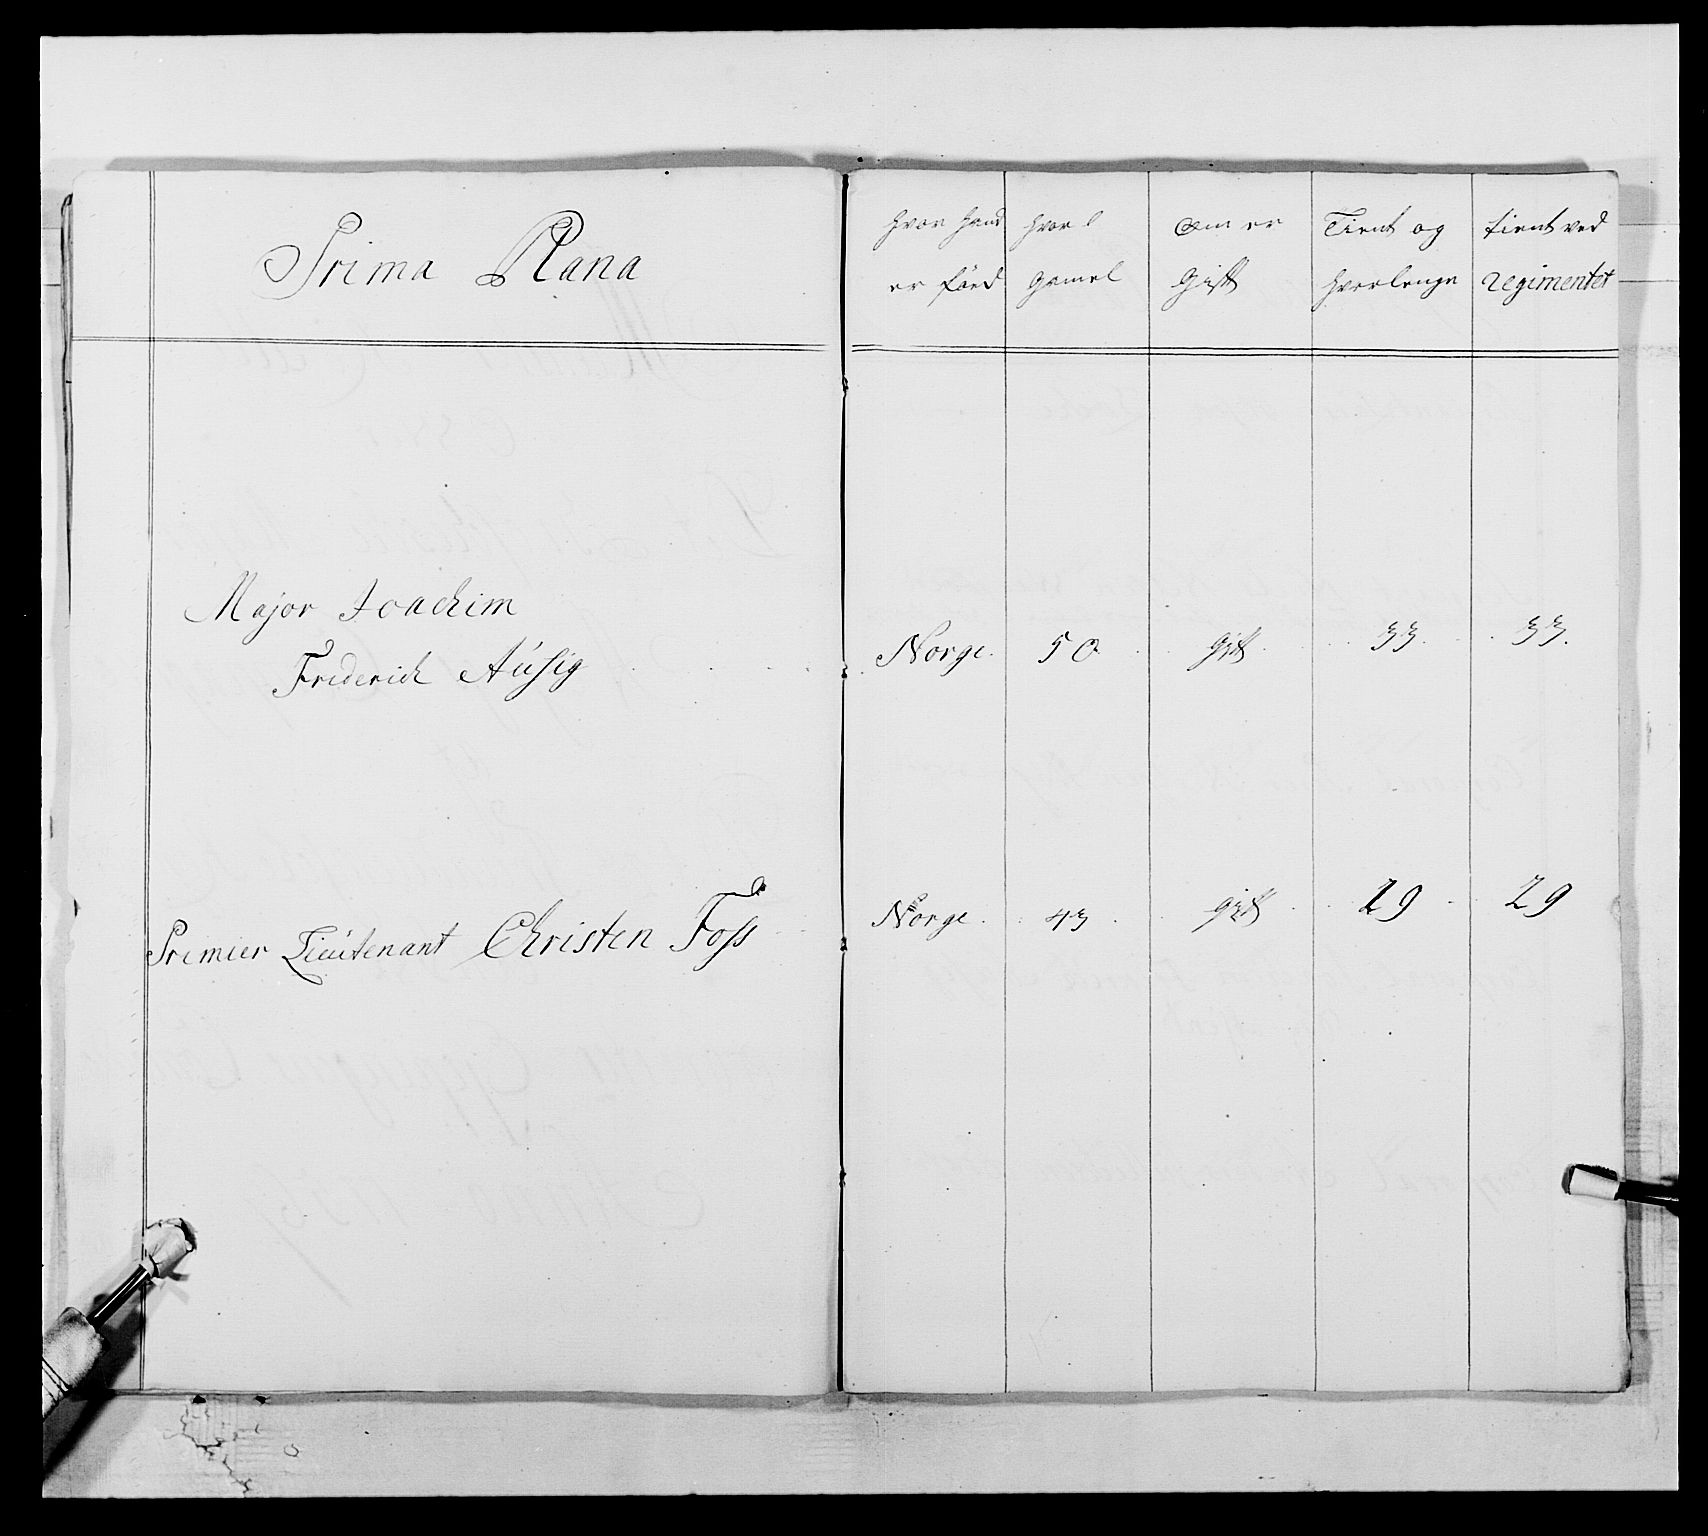 Prima Plana
hvor hand er föed
hvor gamel
Om er Gift
Tient og hvorlenge
tient ved Regimentet
Major Joachim
Friderich Ausig Norge 50 Gift 33 33
Premier Lieutenant Christen Foss Norge 43 gift 29 29